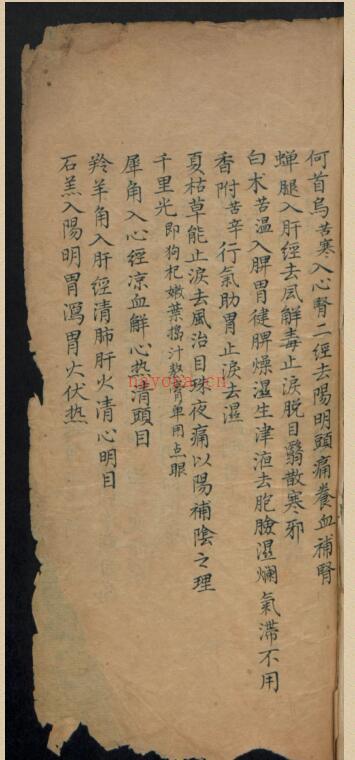 何首乌苦寒入心腎二經去陽明頭痛養血補腎
蟬腿入肝經去風解毒止淚脱目翳散寒邪
白术苦温入脾胃健脾燥濕生津液去胞臉濕爛氣滯不用
香附苦辛行氣助胃止淚去濕
夏枯草能止淚去風治目珠夜痛以陽補陰之理
千里光即狗杞嫩葉搗汁熬膏单用点眼
犀角入心經凉血解心热清頭目
羚羊角入肝經清肺肝火清心明目
石羔入陽明胃瀉胃火伏热